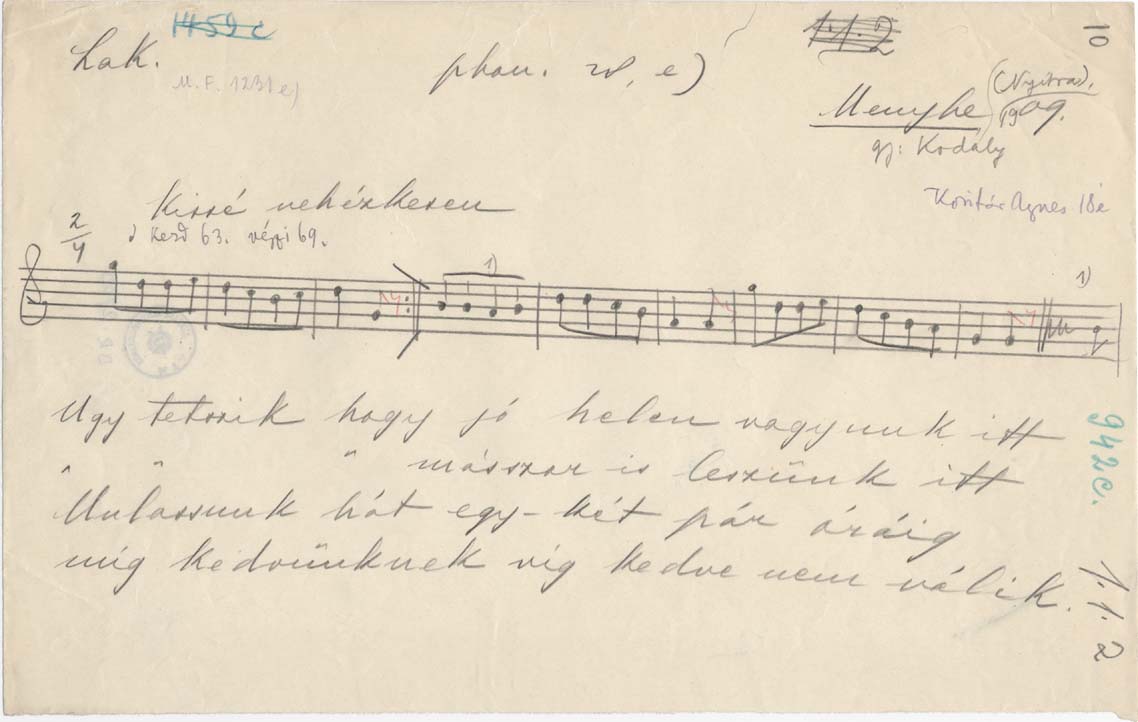 1459c
1.1.2
10
Lak.
phon. 28, e)
M.F. 1231 e)
Menyhe (Nyitra), 1909.
gy: Kodály
Ágnes 18é
Kissé nehézkesen
2/4
kezd 63. végzi 69.
1)
1)
Ugy tetszik hogy jó helen vagyunk itt
" " " másszor is leszünk itt
Mulassunk hát egy-két pár óráig
míg kedvünknek víg kedve nem válik.
942c.
1.1.2